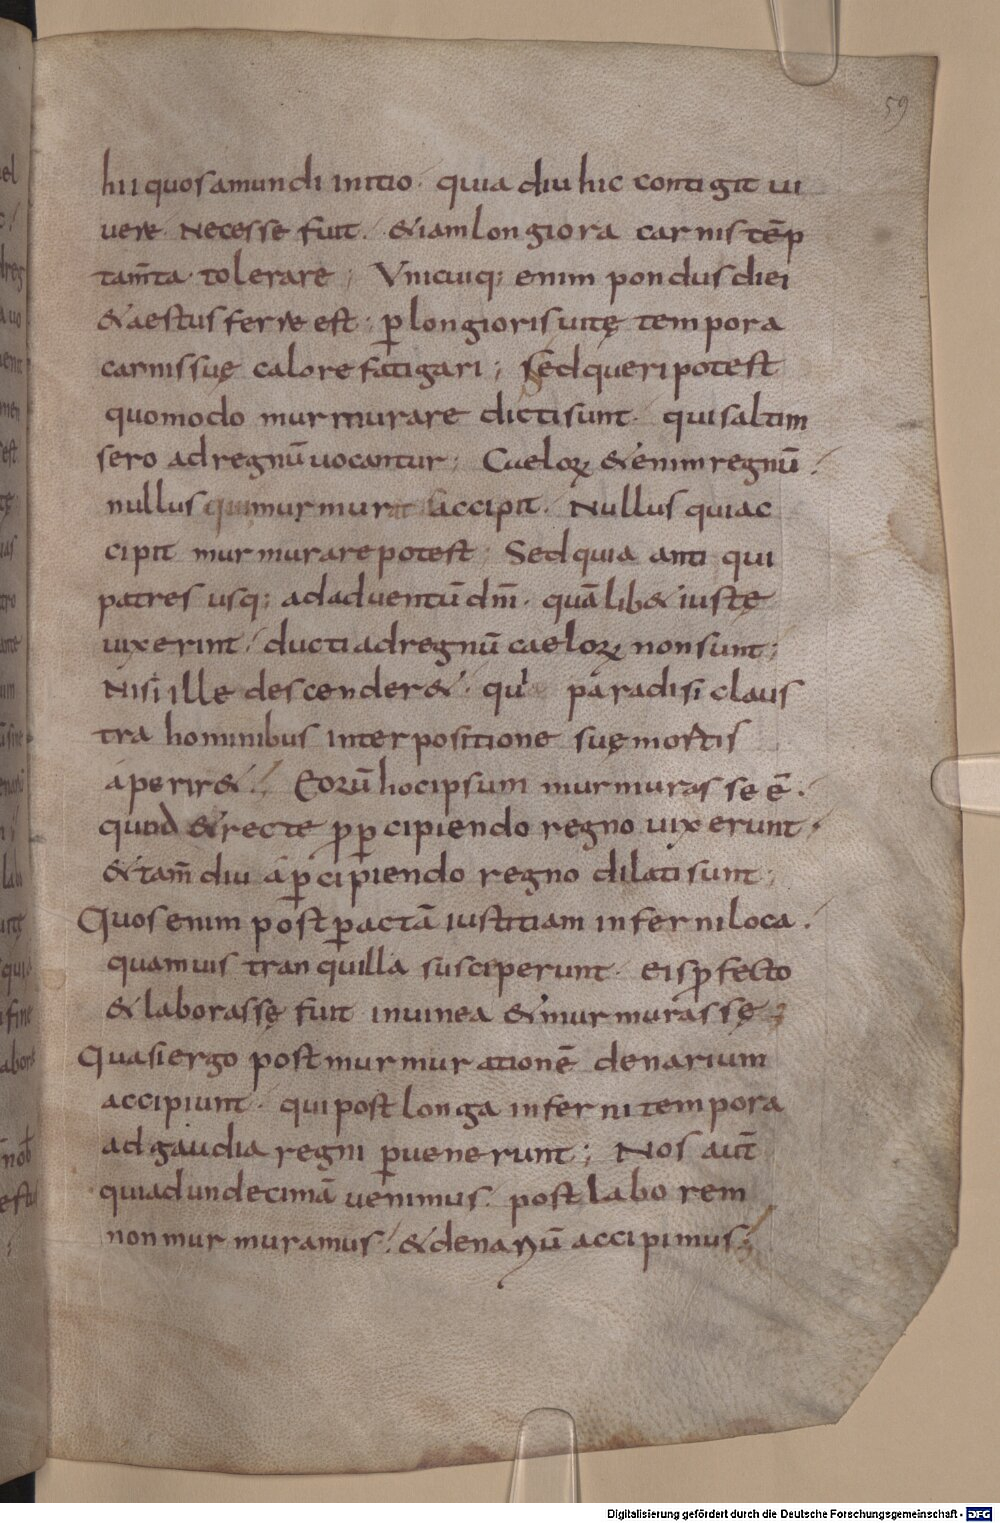 59
hii quos a mundi initio · quia diu hic contigit ui
uere · necesse fuit · & iam longiora carnis tēp
tam̄ta · tolerare ; Vnicuiq; enim pondus diei
& aestus ferre est · ꝑ longioris uitę tempora
carnis suę calore fatigari ; Sed queri potest
quomodo murmurare dicti sunt · qui saltim
sero ad regnū uocantur ; Caeloꝝ &enim regnū ·
nullus qui murmurat accipit · Nullus qui ac
cipit murmurare potest ; Sed quia anti qui
patres usq; ad aduentū dn̄i · quālib& iustę
uixerint · ducti ad regnū caeloꝝ non sunt ;
Nisi ille descender& · qui paradisi claus
tra hominibus inter positione suę mortis
aperir& · Eorū hoc ipsum murmurasse ē ·
quod & recte ꝓ ꝑcipiendo regno uixerunt ·
& tam̄ diu a ꝑcipiendo regno dilati sunt ;
Quos enim post ꝑactā iustitiam inferni loca ·
quamuis tranquilla susceperunt · eis ꝓfecto
& laborassę fuit in uinea & murmurassę ;
Quasi ergo post murmurationē denarium
accipiunt · qui post longa inferni tempora
ad gaudia regni ꝑuenerunt ; Nos aut̄
qui ad undecimā uenimus · post laborem
non murmuramus · & denariū accipimus ;
Digitalisierung gefördert durch die Deutsche Forschungsgemeinschaft - DFG